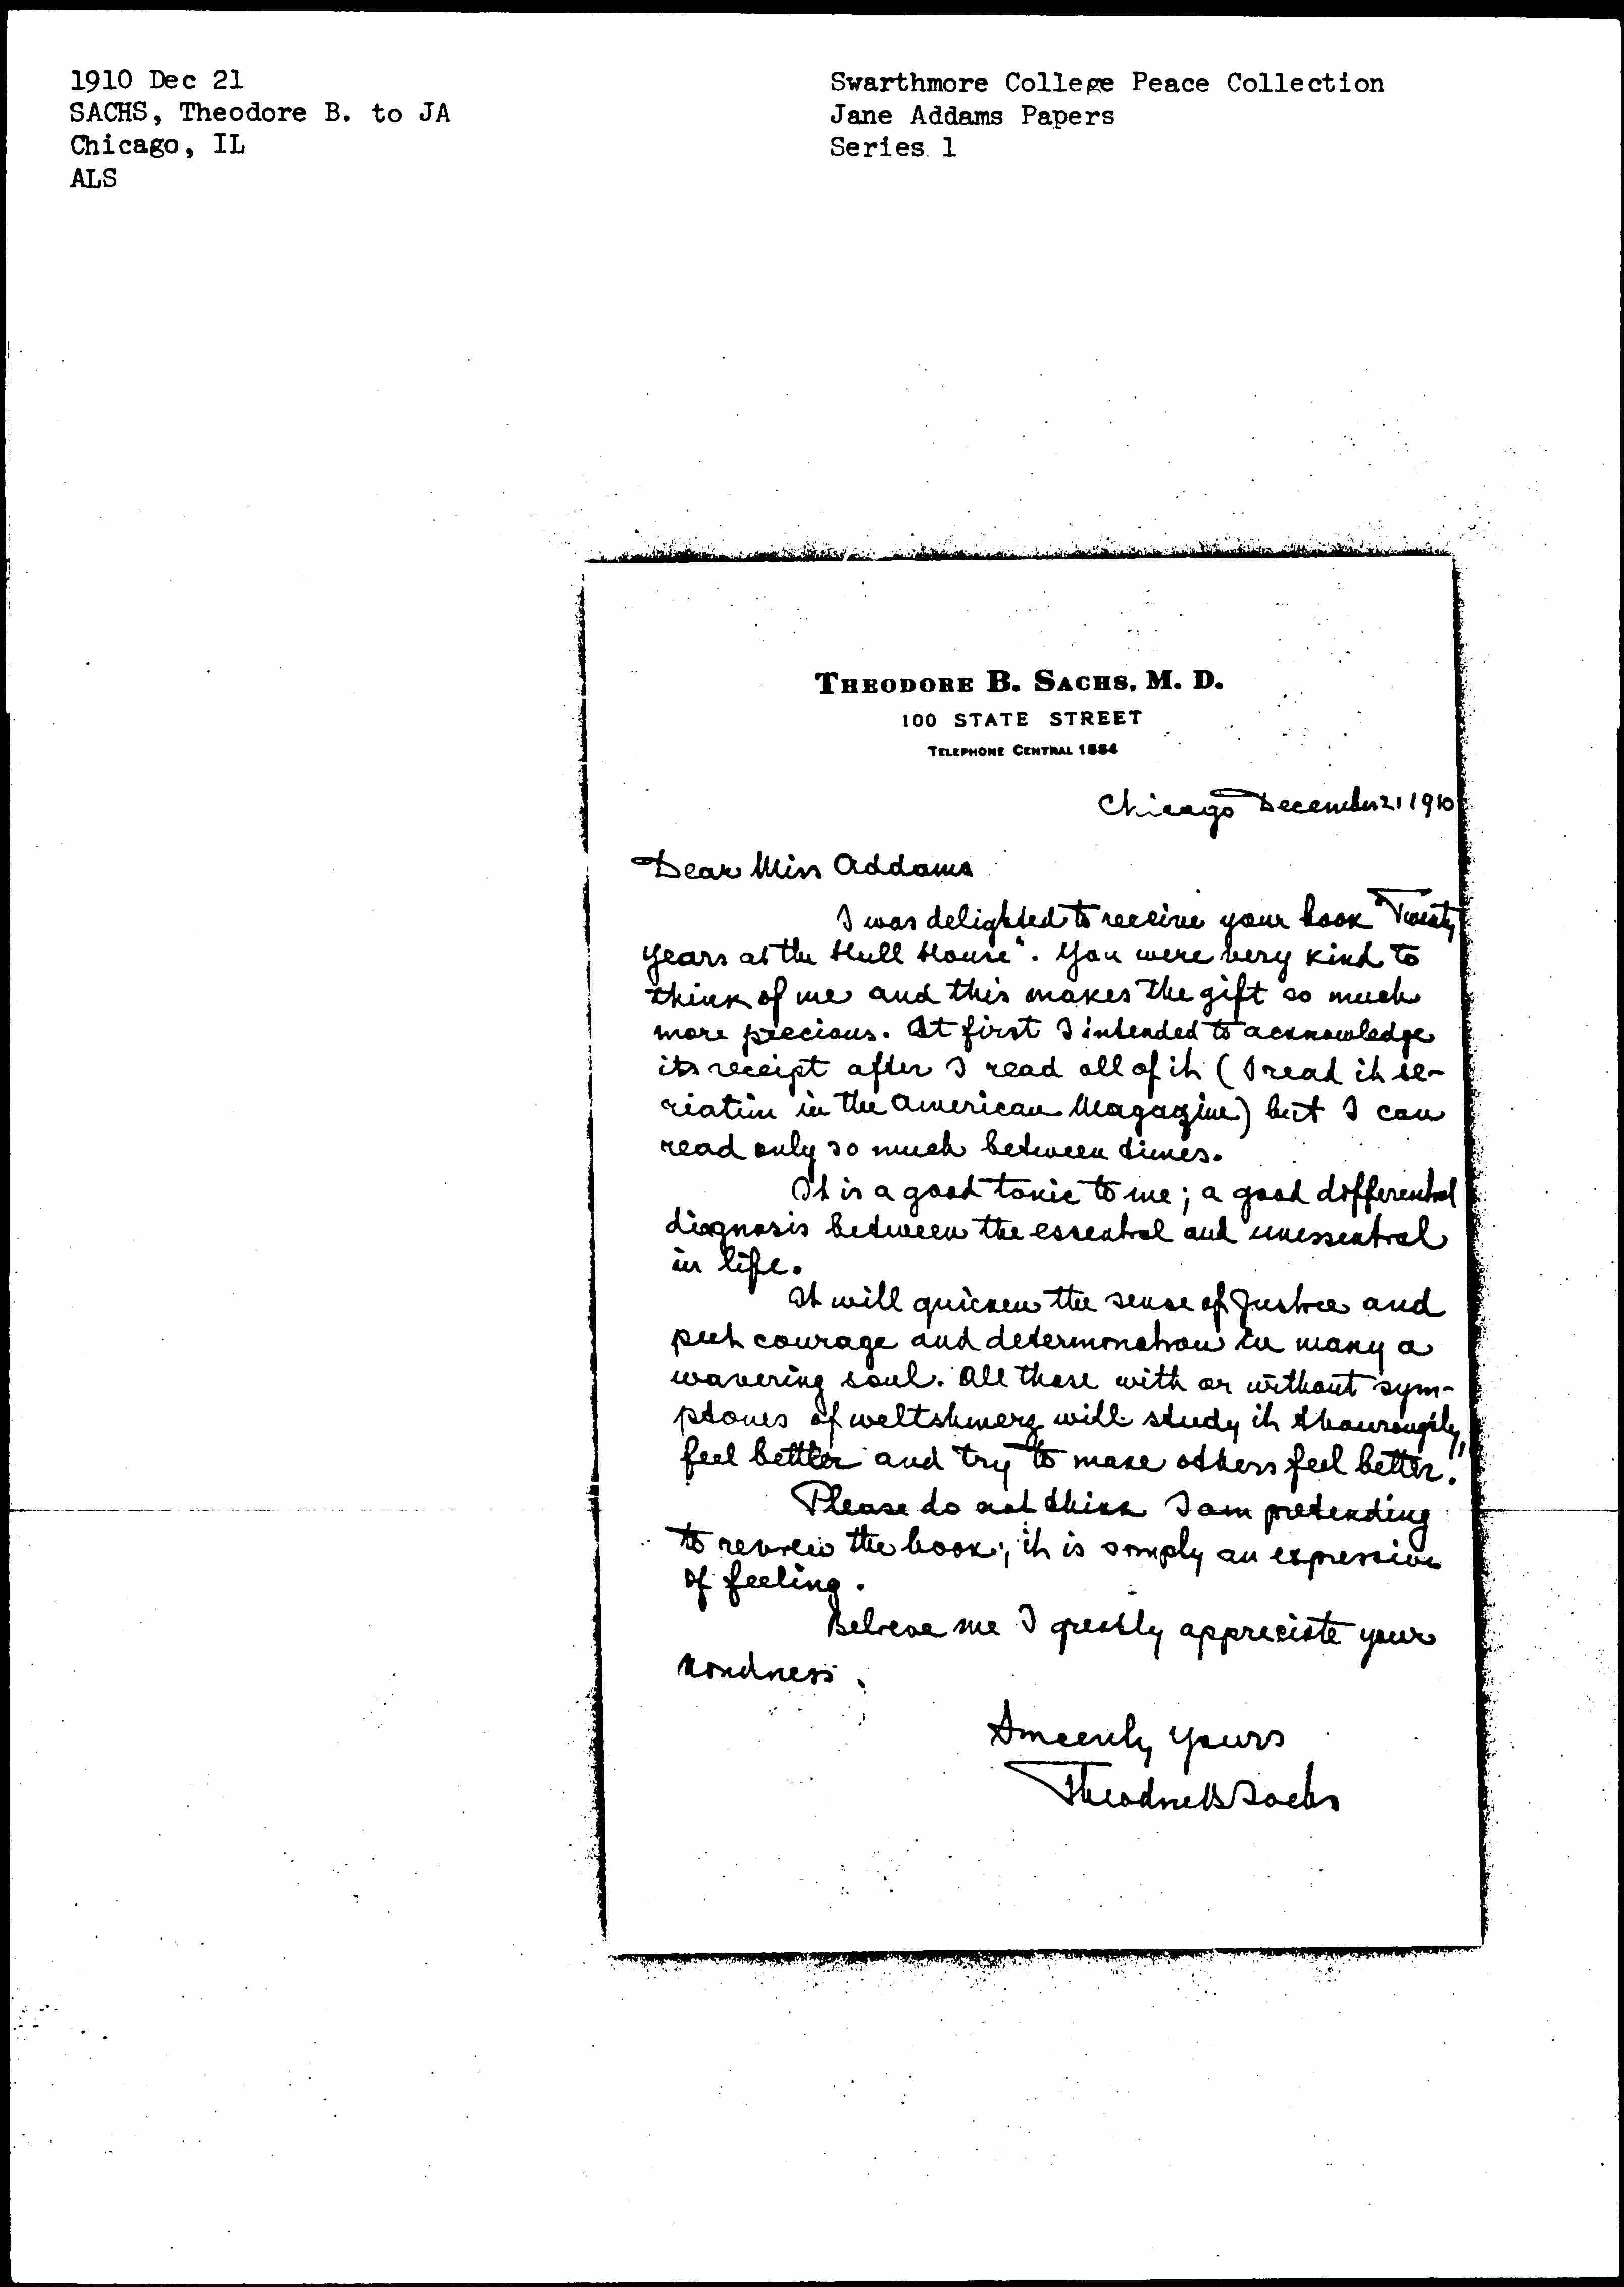 1910 Dec 21
SACHS, Theodore B. to JA
Chicago, IL
ALS
Swarthmore College Peace Collection
Jane Addams Papers
Series 1
THEODORE B. SACHS, M. D.
100 STATE STREET
TELEPHONE CENTRAL 1884
Chicago December 21 1910
Dear Miss Addams
I was delighted to receive your book "Twenty
years at the Hull House". You were very kind to
think of me and this makes the gift so much
more precious. At first I intended to acknowledge
its receipt after I read all of it (I read it se-
riatim in the American Magazine) but I can
read only so much between times.
It is a good tonic to me; a good differential
diagnosis between the essential and unessential
in life.
It will quicken the sense of Justice and
put courage and determination in many a
wavering soul. All those with or without sym-
ptoms of weltshmerz will study it thouroughly,
feel bettter and try to make others feel better.
Please do not think I am pretending
to review the book; it is simply an expression
of feeling.
Believe me I greatly appreciate your
kindness.
Sincerely yours
Theodore B Sachs